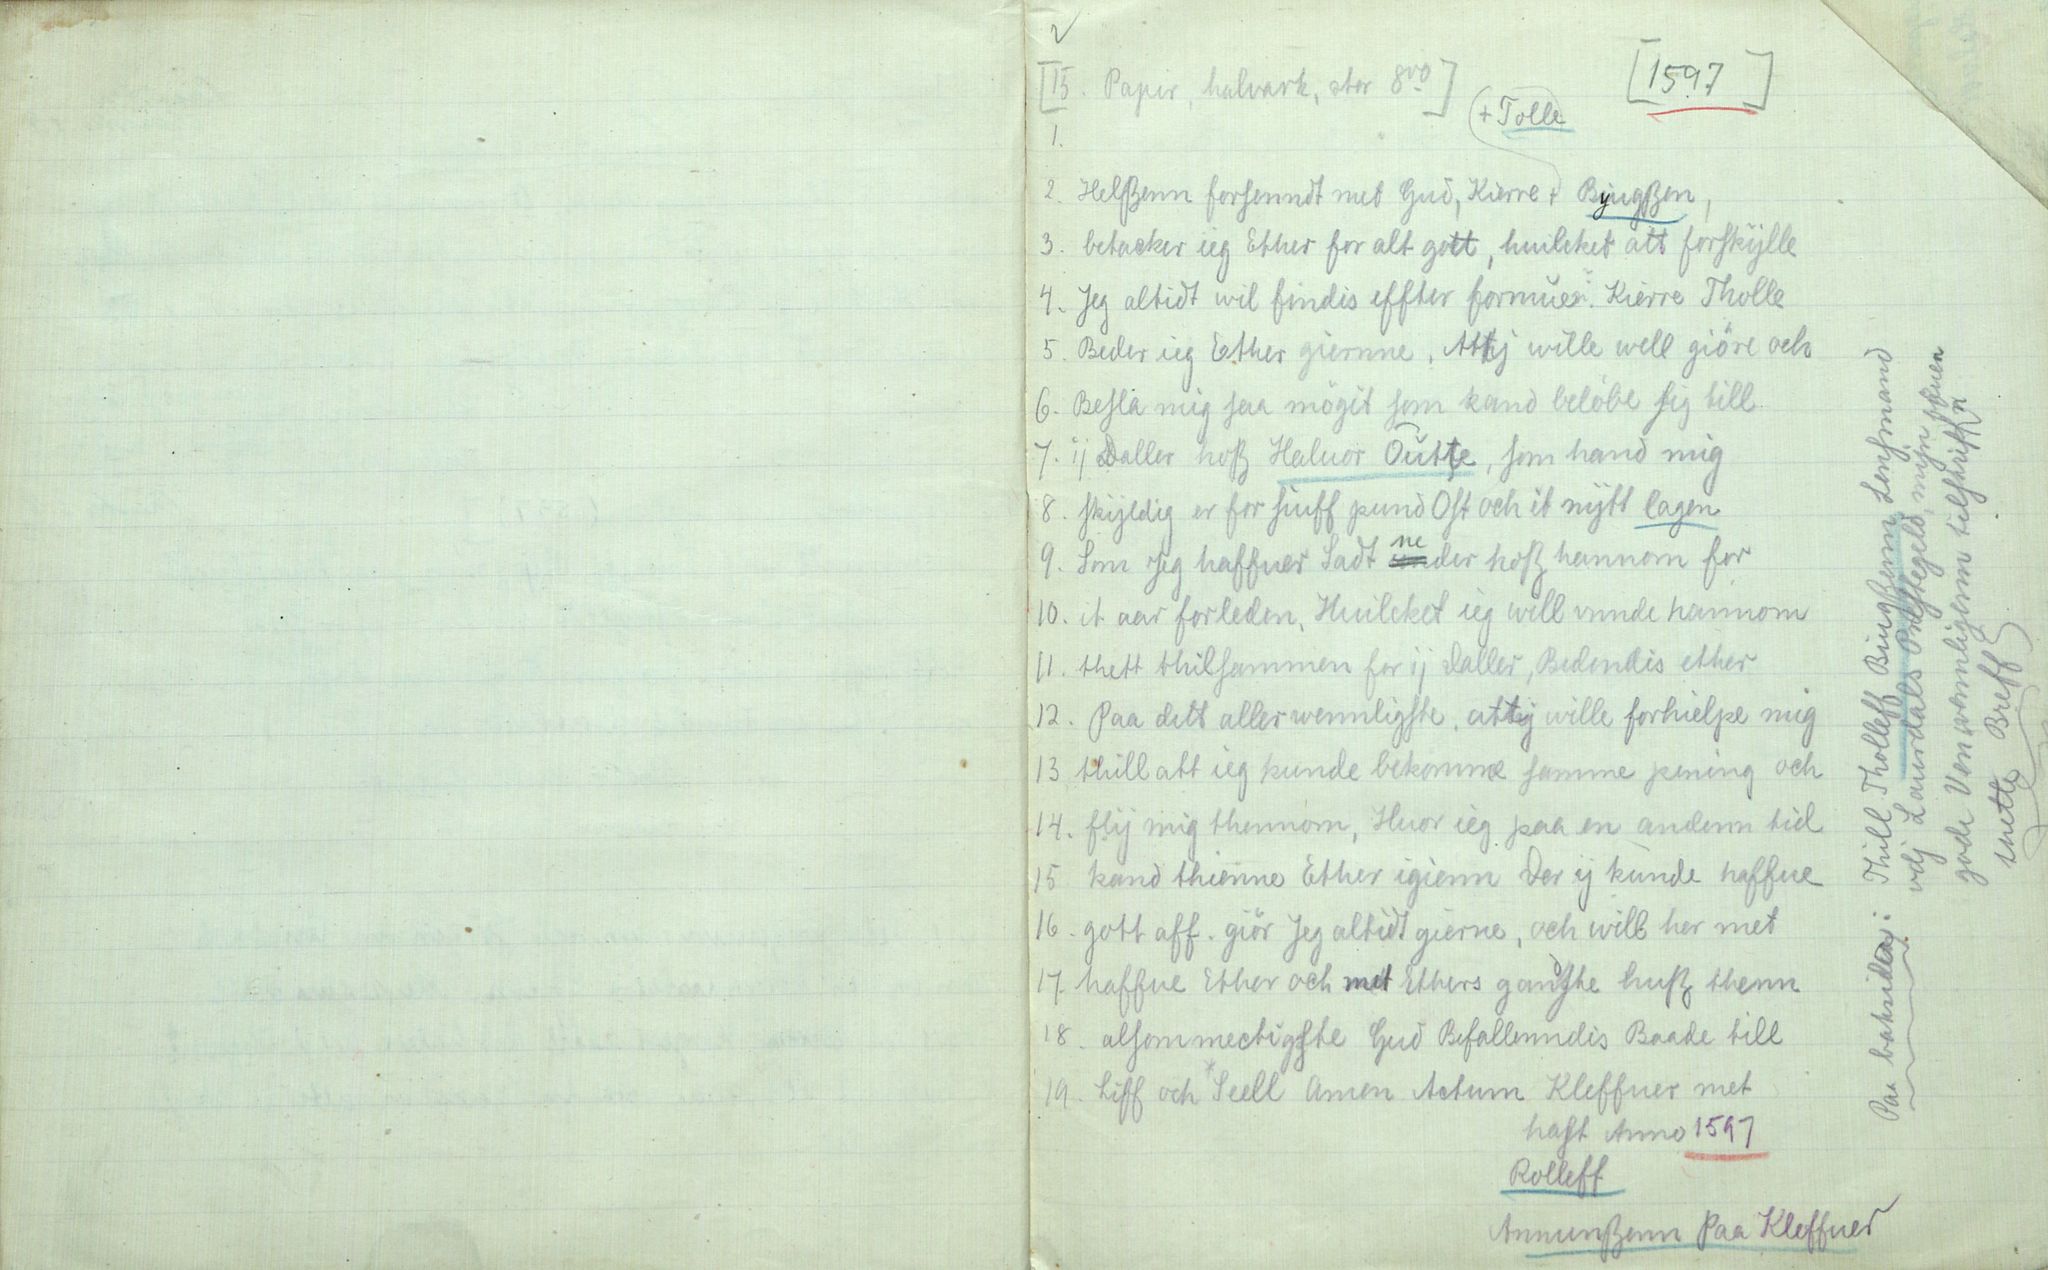 [15. Papir, halvark, stor 8vo]
[1597]
+ Tolle
1.
2. Helßenn forsenndt met Gud, Kierre + Byugßen,
3. betacker ieg Ether for alt gott, huilcket att forskylle
4. Jeg altidt wil findis effter formue. Kierre Tholle
5. Beder ieg Ether giernne, Attij wille well giöre och
6. Besla mig saa mögit som kand belöbe sig till
7. ij Daller hoß Haluor Outte, som hand mig
8. skyldig er for siuff pund Ost och it nytt lagen
9. Som Jeg haffuer Sadt neder hoß hannom for
10. it aar forleden, Huilcket ieg well vnnde hannom
11. thett thilsammen for ij daller, Bedendis ether
12. Paa dett aller wennligste, attij wille forhielpe mig
13 thill att ieg kunde bekomme samme pening och
14. flij mig thennom, Huor ieg paa en andenn tid
15 kand thienne Ether igienn Der ij kunde haffue
16. gott aff. giör Jeg altidt gierne, och will her met
17. haffue Ether och met Ethers ganste huß thenn
18. alsommectigste Gud Befallenndis Baade till
19. Liff och Seell Amen Actum Kleffuer met
hast Anno 1597
Rolleff
AnnunßennPaa Kleffuer
Paa baksiden:
Thill Tholleff Biugßenn Lensmand
vdj Laurdals Prestegeld, mijn
gode Ven wennligenn tilschriffn
thette Breff